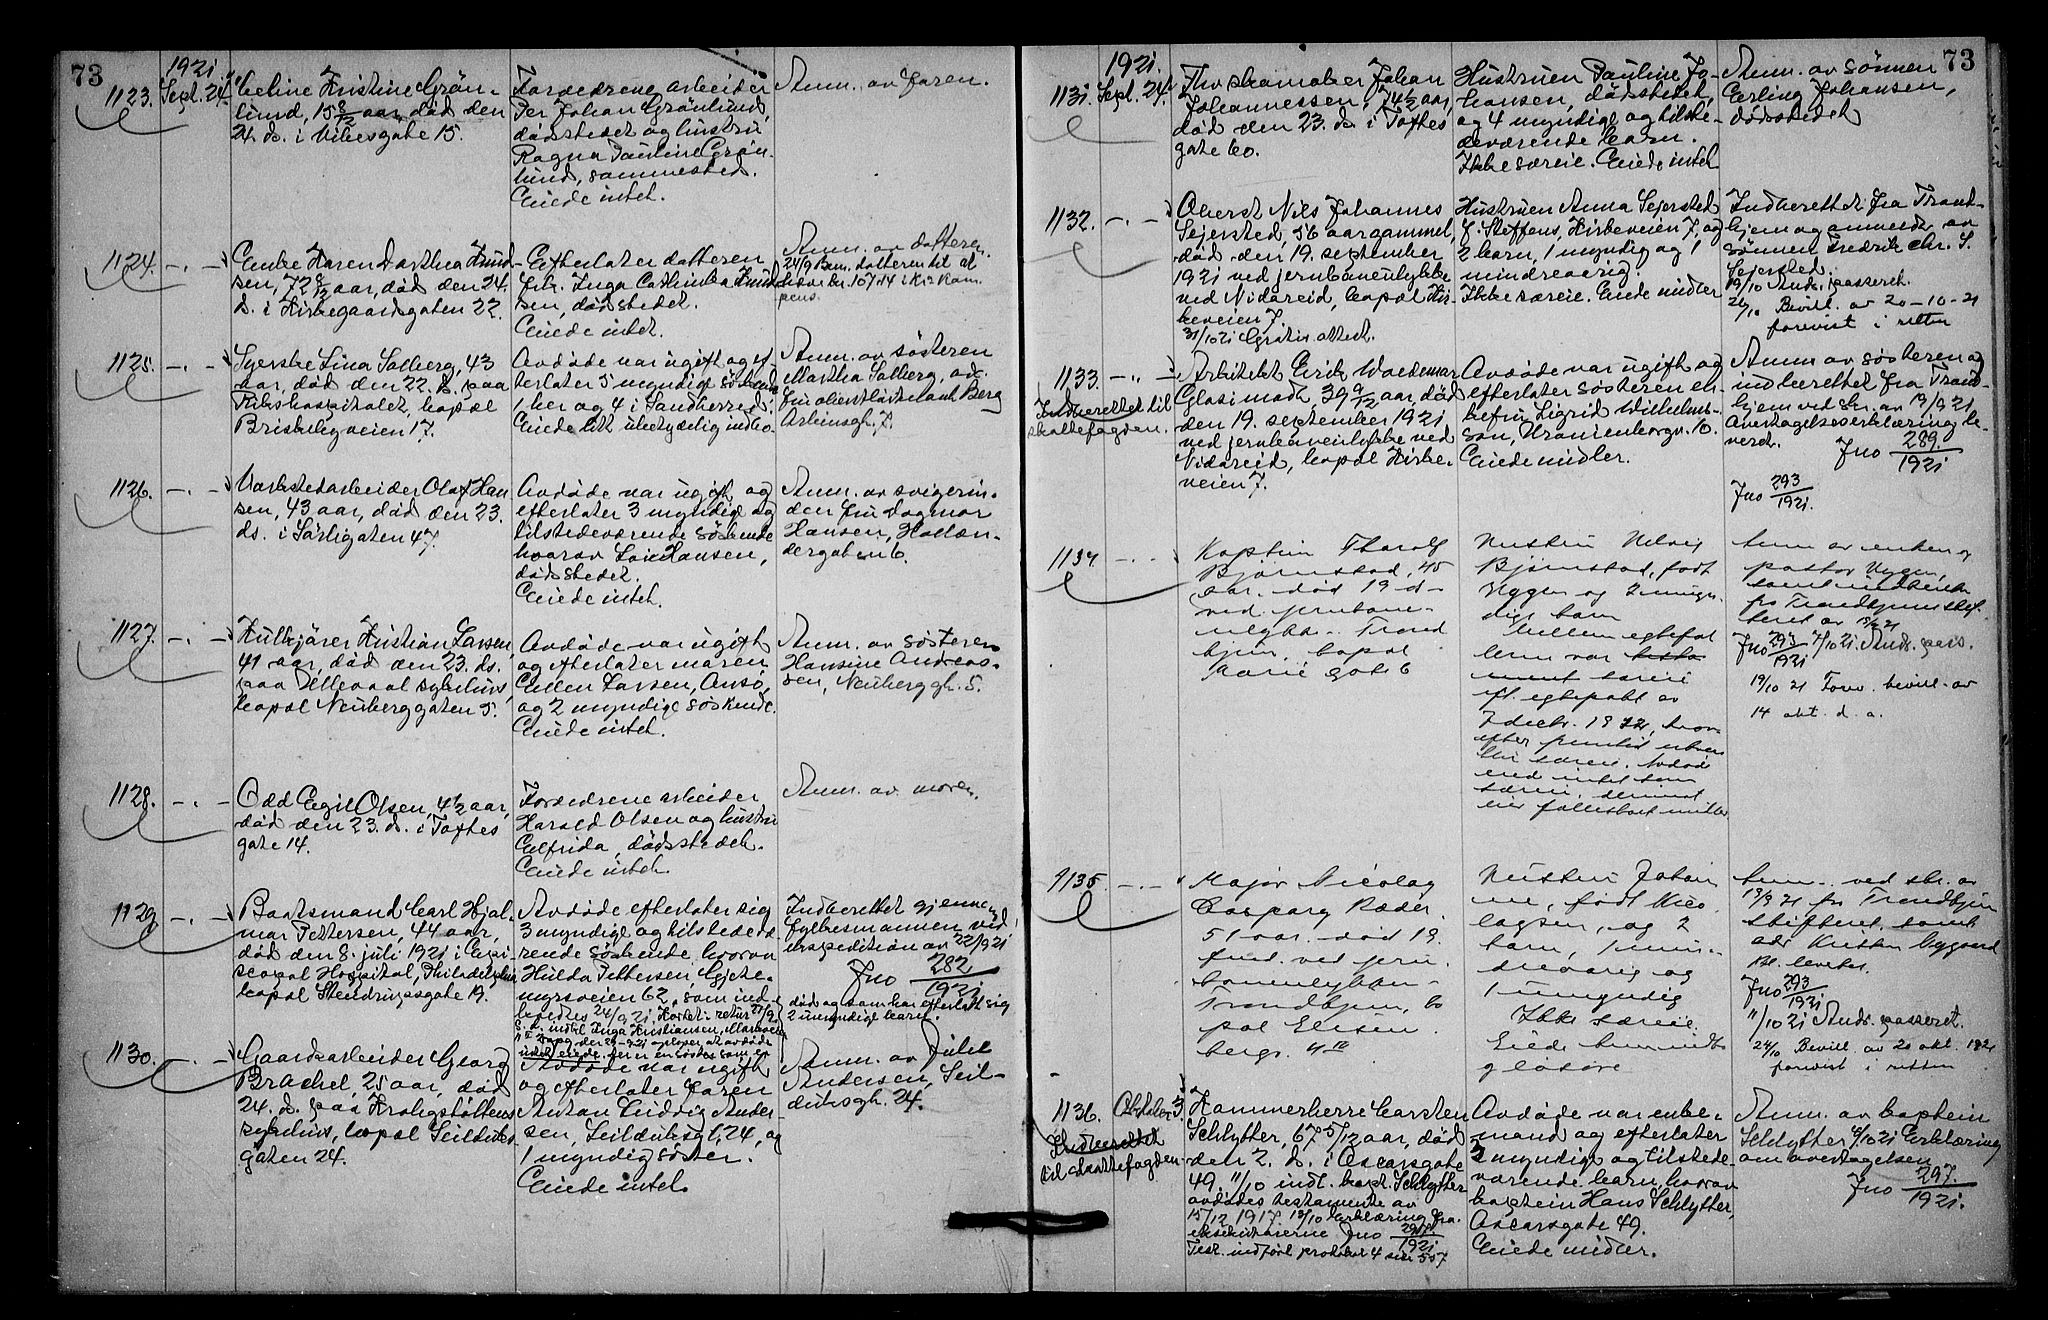 73
1921
1123. Sept. 24.
Celine Kristine Grön-
lund, 15 8/12 aar, död den
24. ds. i Vibesgate 15.
Forældrene arbeider
Per Johan Grönlund,
dödsstedet og hustru
Ragna Pauline Grön-
lund, sammested.
Eiede intet.
Anm. av faren.
1124. -"-
Enke Karen Dorthea Knud-
sen, 72 8/12 aar, död den 24.
ds. i Kirkegaardsgaten 22.
Efterlater datteren
frk. Inga Cathinka Knud-
sen, dödsstedet.
Eiede intet.
Anm. av datteren.
24/9 Bem. datteren til at
hæve kr. 107.44 i
pens.
1125. -"-
Syerske Lina Solberg, 43
aar, död den 22. ds. paa
Rikshospitalet, bopæl
Briskebyveien 17.
Avdöde var ugift og ef-
terlater 5 myndige söskende
1 her og 4 i Sandherred.
Eiede litt ubetydelig indbo.
Anm. av sösteren
Martha Solberg, adr.
fru oberstlöitnant Berg
Arbinsgt. 7.
1126. -"-
Verkstedarbeider Olaf Han-
sen, 43 aar, död den 23.
ds. i Sörligaten 47.
Avdöde var ugift og
efterlater 3 myndige og
tilstedeværende söskende
hvorav Hansen,
dödsstedet.
Eiede intet.
Anm. av svigerin-
den fru Dagmar
Hansen, Hollæn-
dergaten 6.
1127. -"-
Kulkjörer Kristian Larsen,
41 aar, död den 23. ds.
paa Ullevaal sykehus,
bopæl Neuberggaten 5.
Avdöde var ugift
og efterlater moren
Ellen Larsen,
og 2 myndige söskende.
Eiede intet.
Anm. av sösteren
Hansine Andreas-
sen, Neuberggt. 5.
1128. -"-
Odd Egil Olsen, 4 1/2 aar,
död den 23. ds. i Toftes
gate 14.
Forældrene arbeider
Harald Olsen og hustru
Elfrida, dödsstedet.
Eiede intet.
Anm. av moren.
1129. -"-
Baatsmand Carl Hjal-
mar Pettersen, 44 aar,
död den 8. juli 1921 i Epis-
copal Hospital, Philadelphia
bopæl Stendrupsgate 19.
Avdöde efterlater sig
3 myndige og tilstedevæ-
rende söskende, hvorav
Hulda Pettersen, Gjete-
myrsveien 62, som ind-
kaldtes 24/9 21. Kortet i retur 27/9
indk. Inga Kristiansen,
oplyser at avdöde
intet eiede.
Indberettet gjennem
fylkesmannen ved
ekspedition av 22/9 21
Jno 282/1921
död og som har efterlatt sig
2 umyndige barn.
1130. -"-
Gaardsarbeider Georg
Brachel, 25 aar, död
24. ds. paa Krohgstöttens
sykehus, bopæl Seilduks-
gaten 24.
Avdöde var ugift
og efterlater faren
Anton Ludvig Ander-
sen, Seilduksgt. 24, og
1 myndig söster.
Eiede intet.
Anm. av
Andersen, Seil-
duksgt. 24.
73
1921.
1131. Sept. 24.
Fhv. skomaker Johan
Johannessen, 74 1/2 aar,
död den 23. ds. i Toftes
gate 60.
Hustruen Pauline Jo-
hansen, dödsstedet,
og 4 myndige og tilste-
deværende barn.
Ikke særeie. Eiede intet
Anm. av sönnen
Erling Johansen,
dödsstedet
1132. -"-
Oberst Nils Johannes
Sejersted, 56 aar gammel,
död den 19. september
1921 ved jernbaneulykke
ved Nidareid, bopæl Kir-
keveien 7.
31/10 21 attest.
Hustruen Anna Sejersted
f. Steffens, Kirkeveien 7, og
2 barn, 1 myndig og 1
mindreaarig.
Ikke særeie. Eiede midler
Indberettet fra Trond-
hjem og anmeldt av
sönnen Fredrik Chr. S.
Sejersted.
19/10 Ands. passeret.
26/10 Bevill. av 20-10-21
forevist i retten
1133. -"-
Indberettet til
skattefogden.
Arkitekt Erik Waldemar
Glosimodt, 39 9/12 aar, död
den 19. september 1921
ved jernbaneulykke ved
Nidareid, bopæl Kirke-
veien 7.
Avdöde var ugift og
efterlater sösteren en-
kefru Sigrid Wilhelm-
sen, Uranienborgv. 10.
Eiede midler.
Anm. av sösteren og
indberettet fra Trond-
hjem ved skr. av 19/9 21
Overtagelseserklæring le-
veret.
Jno 289/1921
Jno 293/1921.
1134 -"-
Kaptein Tharalf
Bjørnstad, 45
aar. död 19 ds
ved jernbane-
ulykke. Trond
hjem, bopæl
gate 6
Hustru
Bjørnstad, född
Nygren og 2 umyn-
dige barn
Mellem egtefol
lene var
særeie
efl. egtepakt av
7 decbr. 1912, hvor-
efter
særeie. Avdöde
eied intet som
særeie, derimot
eier fællesboet midler
Anm. av enken og
pastor
samt indberettet
fra Trondhjems
Jno 293/1921 4/10 21. Ands. pass.
19/10 21 Forev. bevill. av
14 okt. d. a.
1135 -"-
Major Nicolay
Casparg Ræder.
51 aar. död 19.
ved jern
baneulykken
Trondhjem, bo
pæl Eilert Sun
Hustru Johan
ne, född Nico
laysen, og 2
barn, 1 min-
dreaarig og
1 umyndig
Ikke særeie.
Eiede
gjösöre
Anm. ved skr. av
19/9 21 fra Trondhjem
stiftsret, samt
adv. Kristen Nygaard
Bl. leveret.
Jno 293/1921
11/10 21 Ands. passeret.
24/10 Bevill. av 20 okt. 1921
forevist i retten
1136. Oktober 3.
Indberettet
til skattefogden.
Kammerherre Carsten
Schlytter, 67 5/12 aar, död
den 2. ds. i Oscarsgate
49. 11/10 indl. kapt. Schlytter
avdödes testamente av
15/12 1917. 18/10 Erklæring fra
eksekutorerne Jno 297/1921
Test. indfört protokol 4 side 557
Avdöde var enke-
mand og efterlater
2 myndige og tilstede-
værende barn, hvorav
kaptein Hans Schlytter,
Oscarsgate 49.
Eiede midler.
Anm. av kaptein
Schlytter 6/10 21 Erklæring
om overtagelsen
Jno 297/1921.